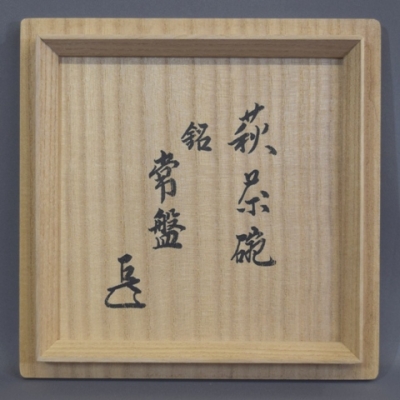 萩茶碗
銘
常盤